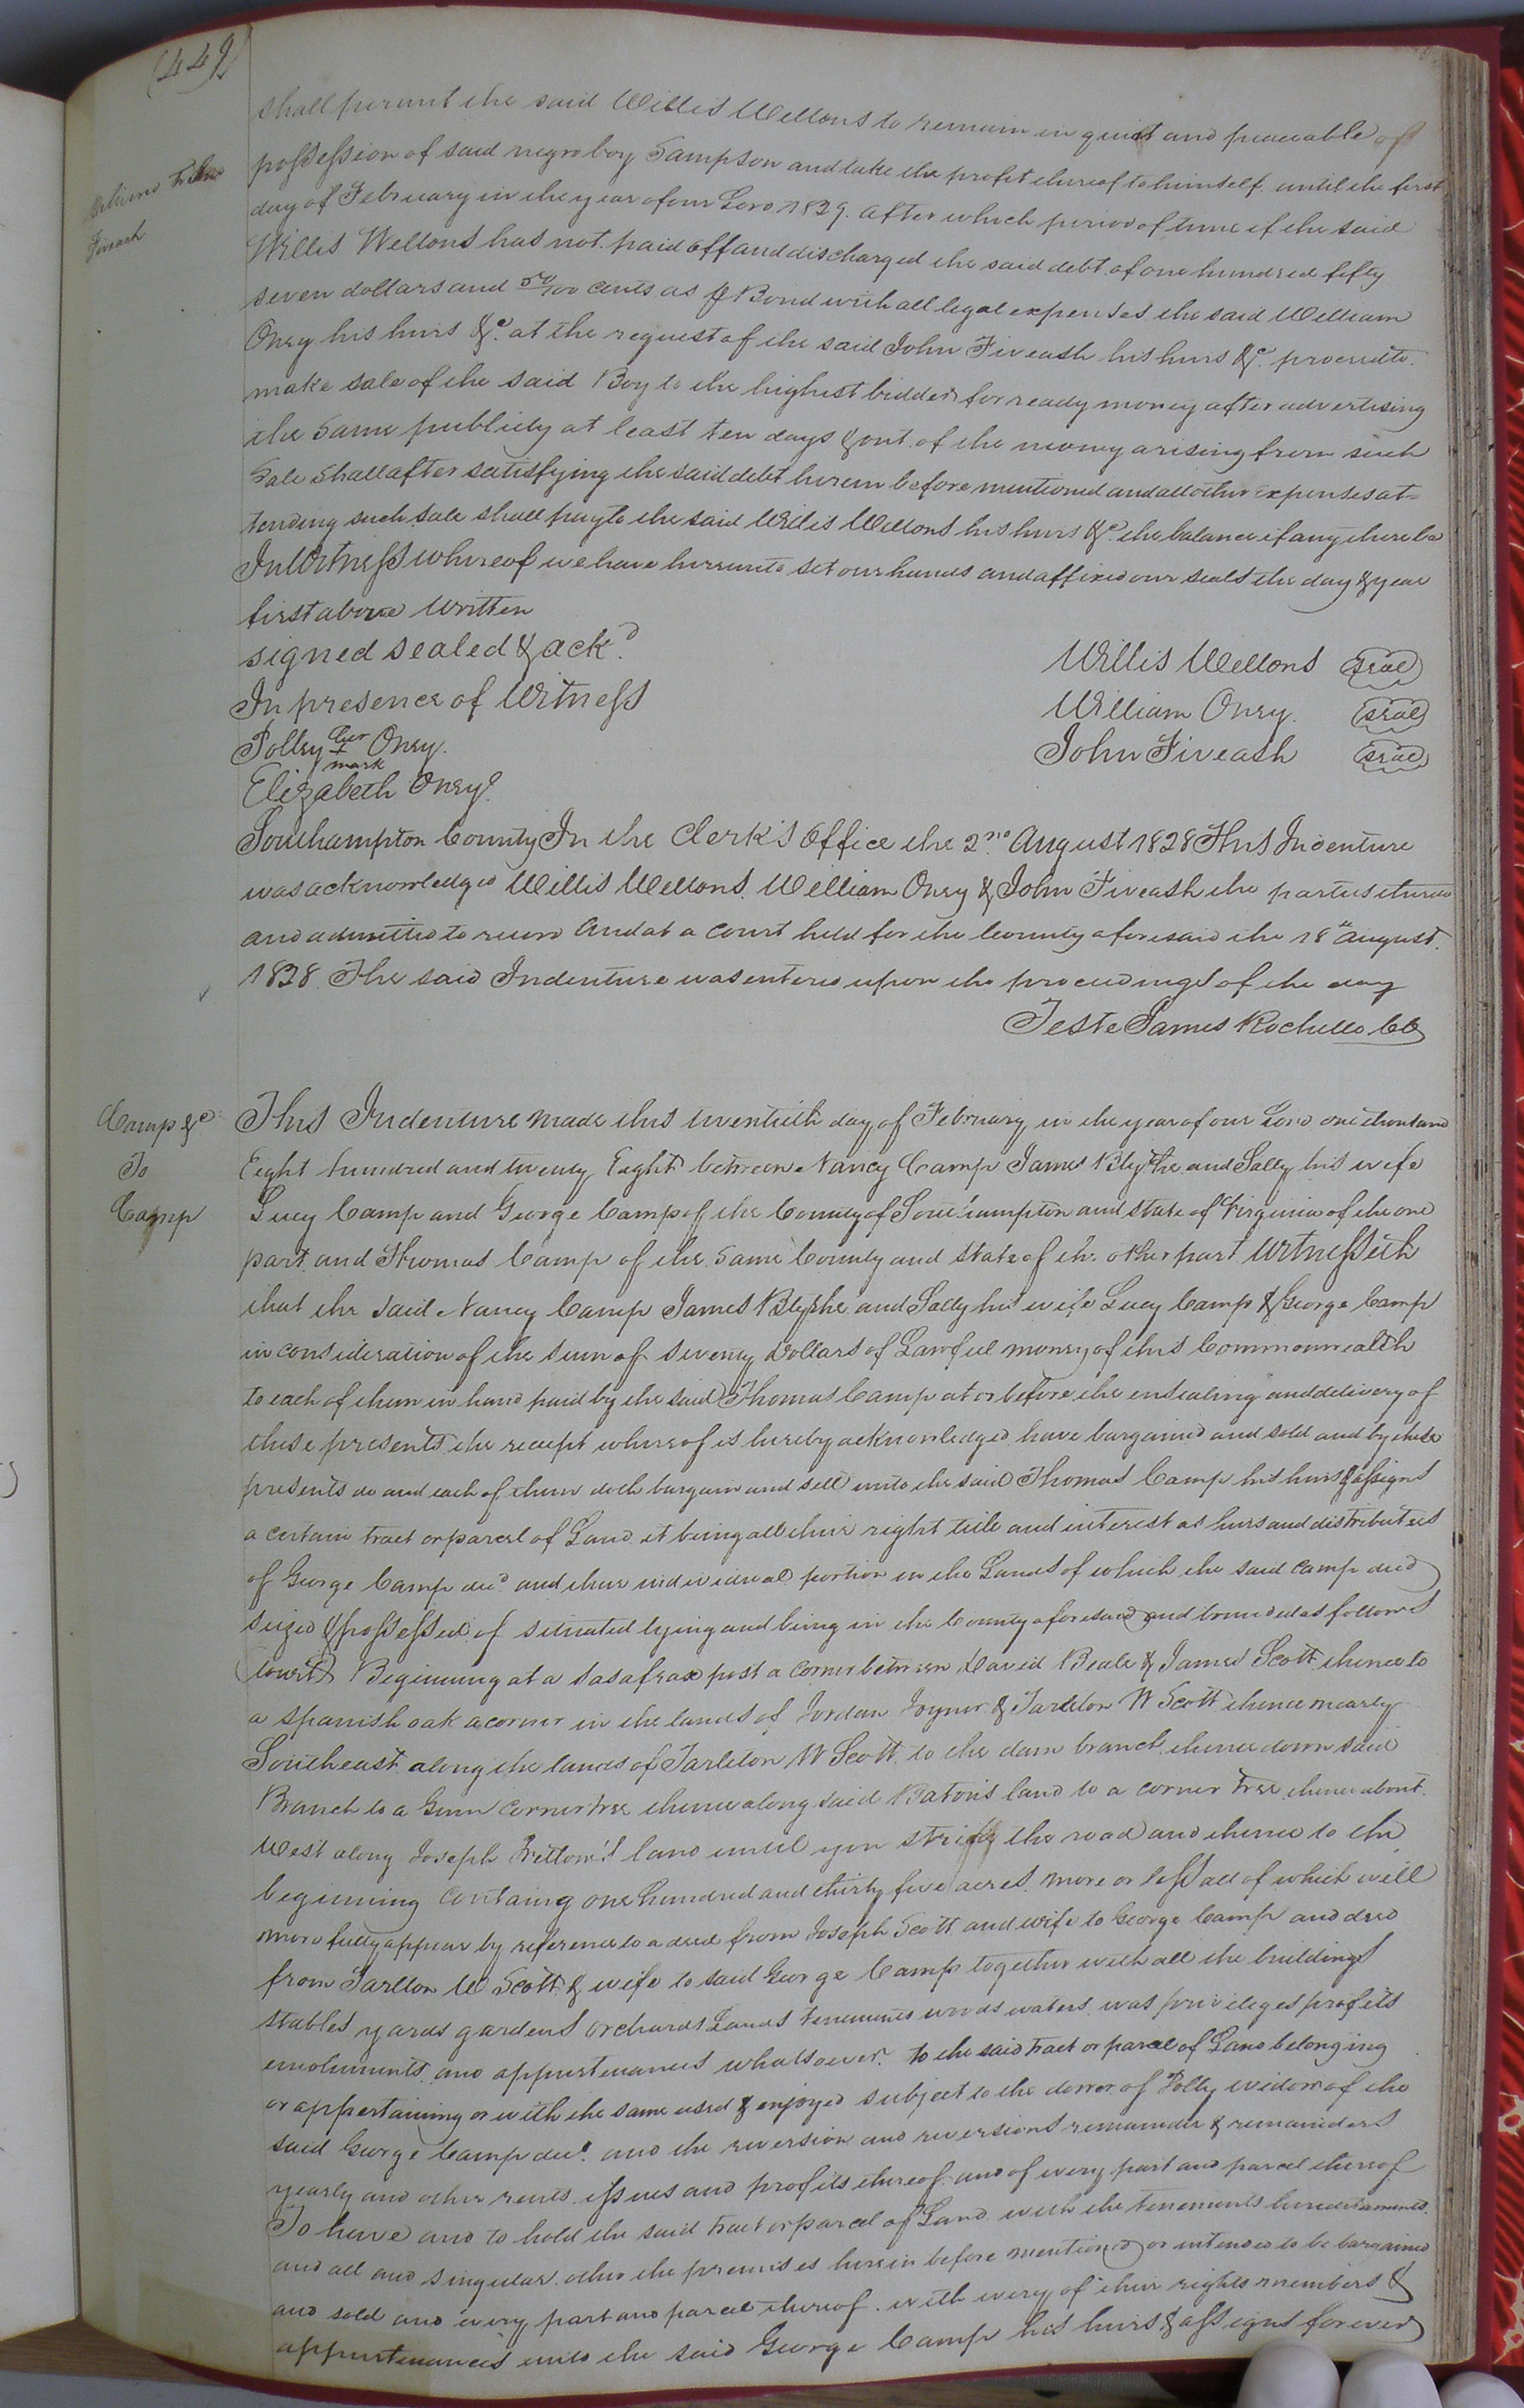 (449)
shall permit the said Willis Wellons to remain in quiet and peaceable
possession of said negro boy Sampson and take the profit thereof to himself until the first
day of February in the year of our Lord 1829. after which period of time if the said
Willis Wellons has not paid off and discharged the said debt of one hundred fifty
seven dollars and 50/100 cents as Bond with all legal expenses the said William
Oney his heirs &c. at the request of the said John Fiveash his heirs &c. proceed to
make sale of the said Boy to the highest bidder for ready money after advertising
the same publicly at least ten days & out of the money arising from such
Sale shall after satisfying the said debt herein before mentioned and all other expenses at=
tending such sale shall pay to the said Willis Wellons his heirs &c. the balance if any there be
In Witness whereof we have hereunto set our hands and affixed our seals the day & year
first above written
signed sealed & ackd.
Willis Wellons seal
In presence of Witness
William Oney. seal
Polley her + mark Oney.
John Fiveash seal
Elizabeth Oney
Southampton County In the Clerk's Office the 2nd. August 1828 This Indenture
was acknowledged Willis Wellons. William Oney & John Fiveash the parties thereto
and admitted to record And at a Court held for the County aforesaid the 18th August.
1828 The said Indenture was entered upon the proceedings of the day
Teste James Rochelle CC
Camp &c
To
Camp
This Indenture made this twentieth day of February in the year of our Lord one thousand
Eight hundred and twenty Eight between Nancy Camp James Blythe and Sally his wife
Lucy Camp and George Camp of the County of Southampton and state of Virginia of the one
part and Thomas Camp of the same County and State of the other part Witnesseth
that the said Nancy Camp James Blythe and Sally his wife Lucy Camp & George Camp
in consideration of the sum of seventy Dollars of Lawful money of this Commonwealth
to each of them in hand paid by the said Thomas Camp at or before the ensealing and delivery of
these presents the receipt whereof is hereby acknowledged have bargained and sold and by these
presents do and each of them doth bargain and sell unto the said Thomas Camp his heirs & assigns
a certain tract or parcel of Land it being all their right title and interest as heirs and distributees
of George Camp decd. and their individual portion in the Lands of which the said Camp died
seized & possessed of situated lying and being in the County aforesaid and bounded as follows
(towit) Beginning at a sasafrax post a corner between David Beale & James Scott thence to
a spanish oak a corner in the lands of Jordan Joyner & Tarleton W Scott thence nearly
Southeast along the lands of Tarleton W Scott to the dam branch thence down said
Branch to a Gum corner tree thence along said Baton's land to a corner tree thence about
West along Joseph land until you the road and thence to the
beginning containg one hundred and thirty five acres more or less all of which will
more fully appear by reference to a deed from Joseph Scott and wife to George Camp and deed
from Tarlton W Scott & wife to said George Camp together with all the buildings
stables yards gardens orchards Lands tenements woods waters was privileges profits
emoluments and appurtenances whatsoever. to the said tract or parcel of Land belonging
or appertaining or with the same used & enjoyed subject to the dower of Polly widow of the
said George Camp decd. and the reversion and reversions remainder & remainders
yearly and other rents issues and profits thereof and of every part and parcel thereof
To have and to hold the said tract or parcel of Land with the tenements hereditaments
and all and singular other the premises herein before mentioned or intended to be bargained
and sold and every part and parcel thereof with every of their rights members &
appurtenances unto the said George Camp his heirs & assigns forever